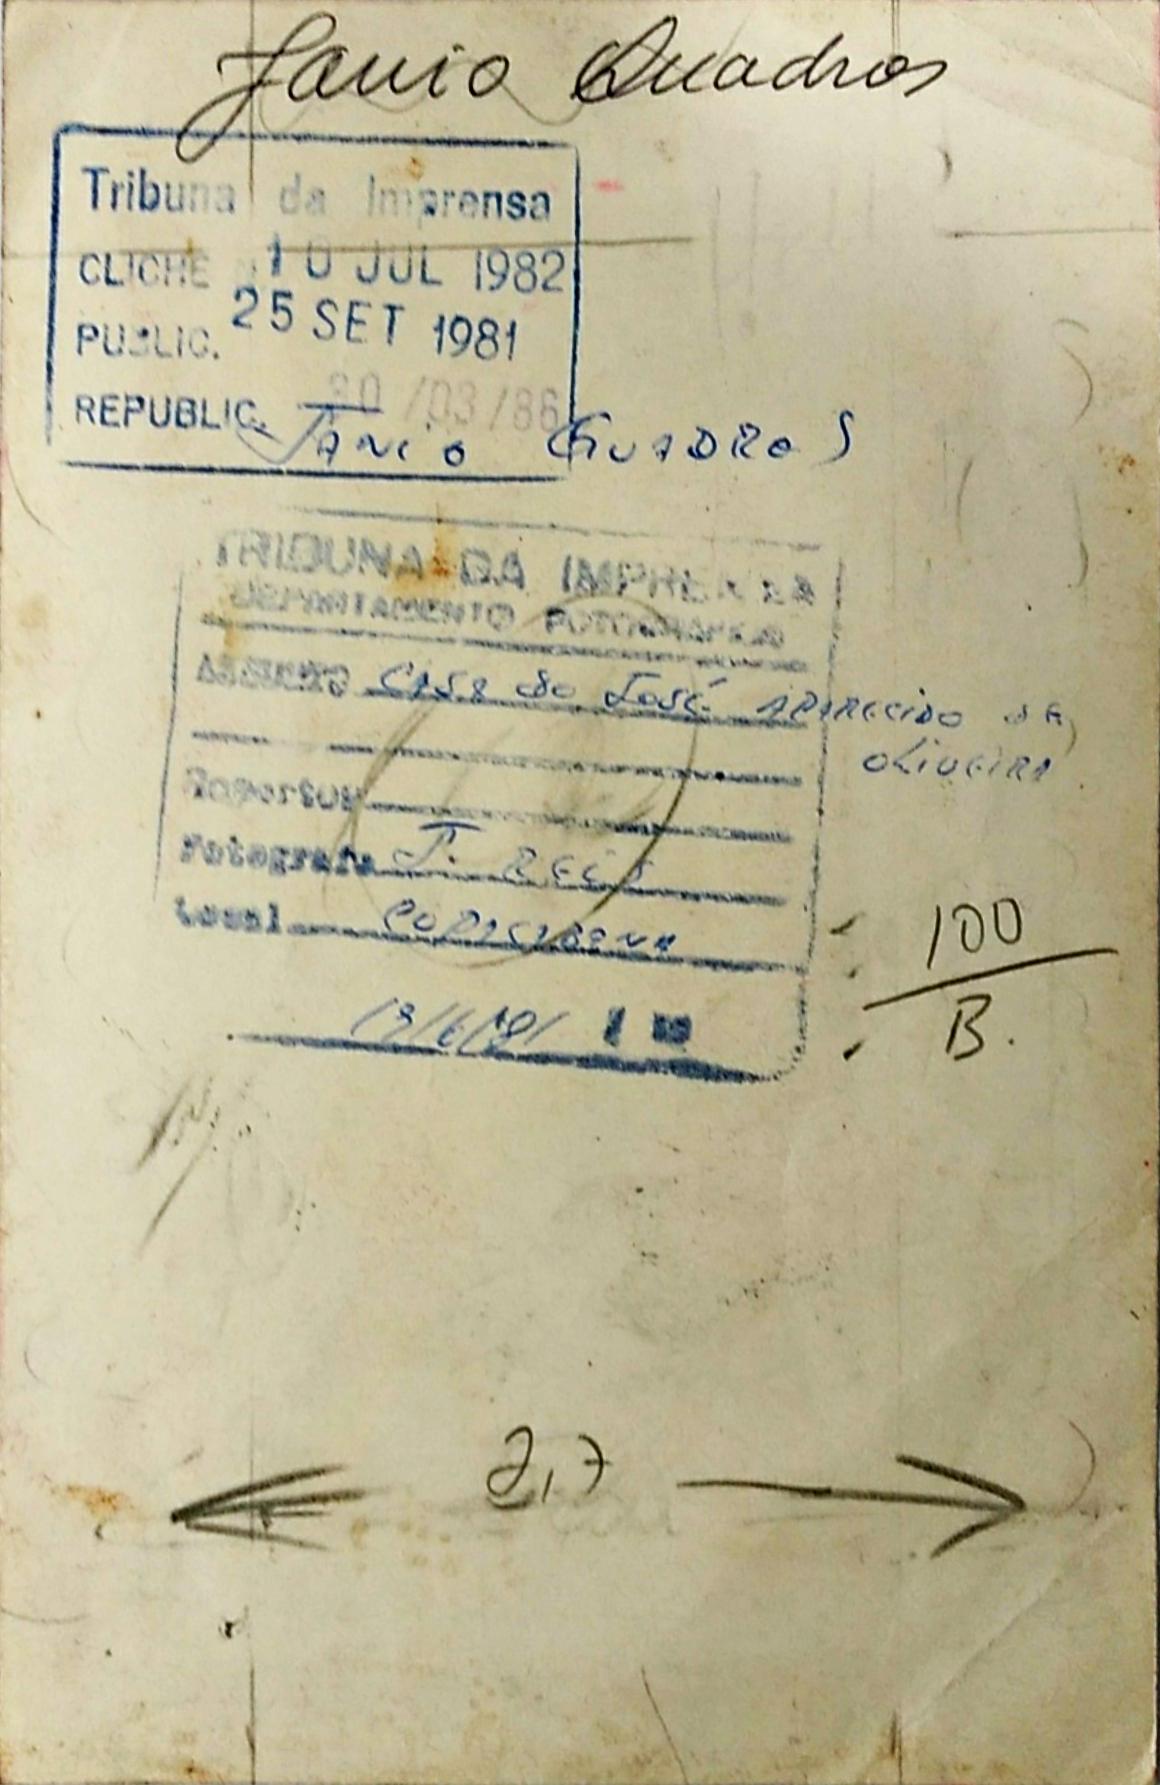 Janio Quadros
Tribuna da Imprensa
CLICHE 10 JUL 1982
PUBLIC. 25 SET 1981
REPUBLIC. 20/03/86
JANIO QUADROS
TRIBUNA DA IMPRENSA
DEPARTAMENTO FOTOGRAFICO
ASSUNTO CASA do José APARECIDO de
OLIVEIRA
Reporter
Fotografo J. REIS
Local COPACABANA
100
B.
2,7